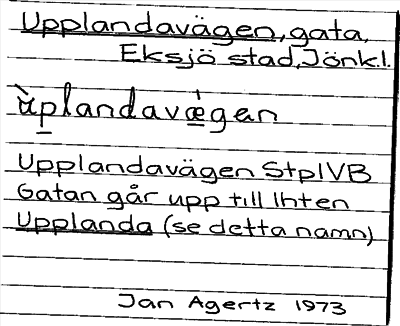 Upplandavägen, gata,
Eksjö stad, Jönk.l.
ùplandavǽgan
Upplandavägen StplVB
Gatan går upp till lhten
Upplanda (se detta namn)
Jan Agertz 1973